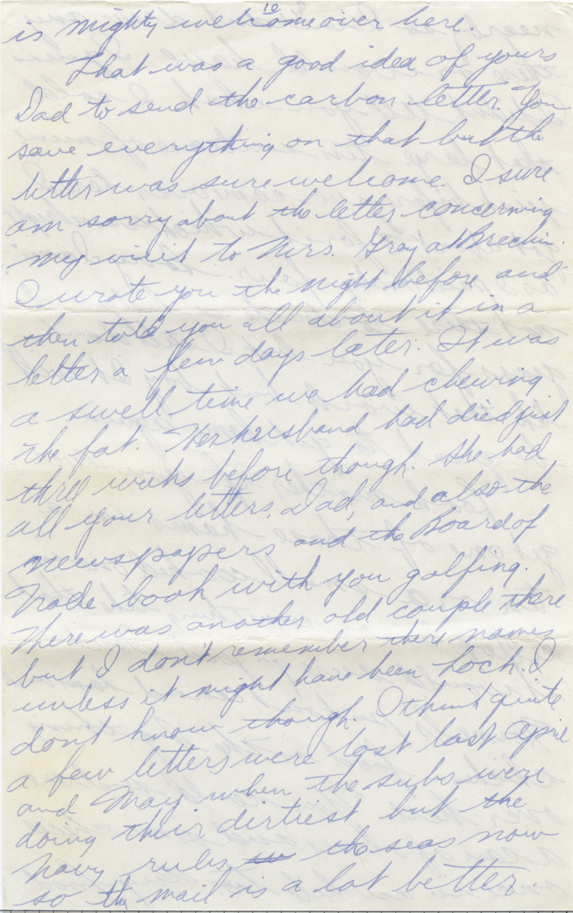 10
is mighty welcome over here.
That was a good idea of yours
Dad to send the carbon letter. You
save everything on that but the
letter was sure welcome. I sure
am sorry about the letter concerning
my visit to Mrs. Gray at Brechin.
I wrote you the night before and
then told you all about it in a
letter a few days later. It was
a swell time we had chewing
the fat. Her husband had died just
three weeks before though. She had
all your letters, Dad, and also the
newspapers and the Board of
Trade book with you golfing.
There was another old couple there
but I don't remember there names
unless it might have been Loch. I
don't know though. I think quite
a few letters were lost last April
and May when the subs were
doing their dirtiest but the
Navy rules the seas now
so the mail is a lot better.